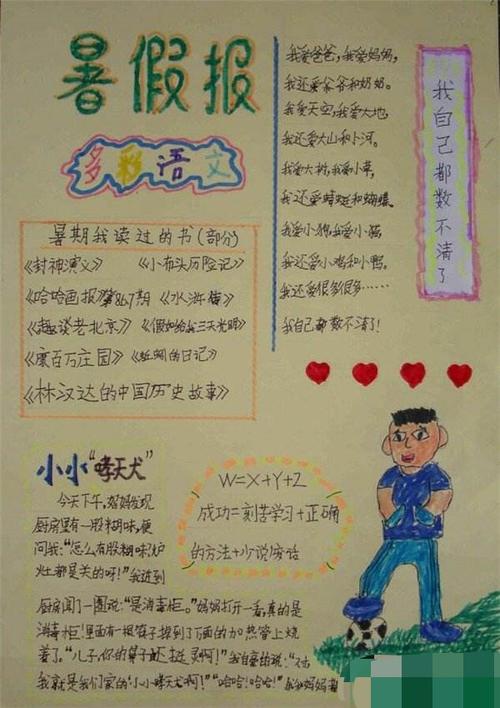 暑假报
多彩语文
暑期我读过的书(部分)
《封神演义》 《小布头历险记》
《哈哈画报第867期 《水浒传》
《趣谈老北京》 《假如给我三天光明》
《康百万庄园》 《蚯蚓的日记》
《林汉达的中国历史故事》
我爱爸爸,我爱妈妈,
我还爱爷爷和奶奶。
我爱天空,我爱大地,
我还爱大山和小河。
我爱大树,我爱小草,
我还爱蜻蜓和蝴蝶。
我爱小狗,我爱小猫
我还爱小鸡和小鸭。
我还爱很多很多……
我自己都数不清了!
我自己都数不清了
小小“哮天犬”
今天下午,妈妈发现
厨房里有一股糊味,便
问我:“怎么有股糊味?炉
灶都是关的呀!”我进到
厨房闻了一圈说:“是消毒柜。”妈妈打开一看,真的是
消毒柜里面有一根筷子掉到了下面的加热管上烧
着了。“儿子,你的鼻子还挺灵啊!”我自豪的说:“
我就是我们家的‘小小哮天犬’啊!”“哈哈!哈哈!”我和妈妈
W=X+Y+Z
成功=刻苦学习+正确
的方法+少说废话